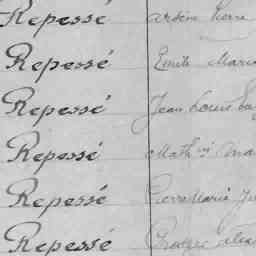 Repessé Arsène Pierre
Repessé Emile Maria
Repessé Jean Louis
Repessé Math
Repessé Pierre Maria
Repessé